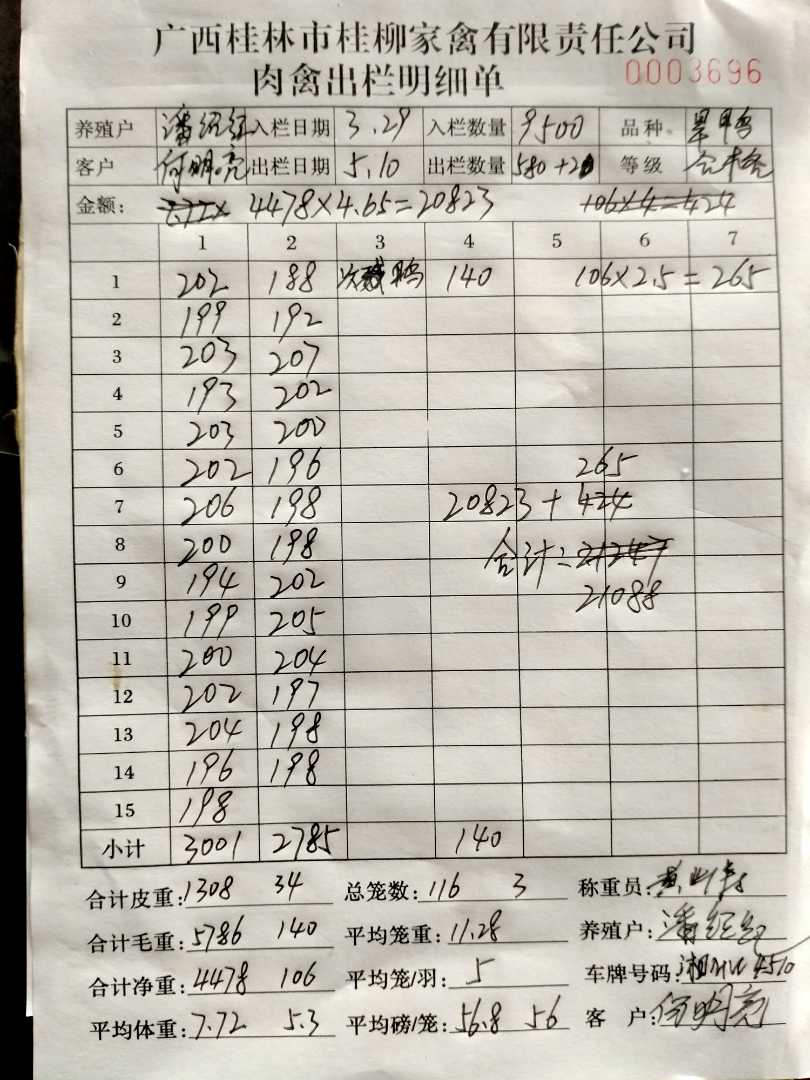 广西桂林市桂柳家禽有限责任公司
肉禽出栏明细单 0003696
养殖户 潘经红 入栏日期 3.29 入栏数量 9500 品种 鸭
客户 何明亮 出栏日期 5.10 出栏数量 580+20 等级
金额: 4478×4.65=20823 106×4=424
1 2 3 4 5 6 7
1 202 188 次残鸭 140 106×2.5=265
2 199 192
3 203 207
4 193 202
5 203 200
6 202 196 265
7 206 198 20823+424
8 200 198 合计=21247
9 194 202 21088
10 199 205
11 200 204
12 202 197
13 204 198
14 196 198
15 198
小计 3001 2785 140
合计皮重:1308 34 总笼数:116 3 称重员:
合计毛重:5786 140 平均笼重:11.28 养殖户:潘经红
合计净重:4478 106 平均笼/羽:5 车牌号码:湘 4510
平均体重:7.72 5.3 平均磅/笼:56.8 56 客 户:何明亮